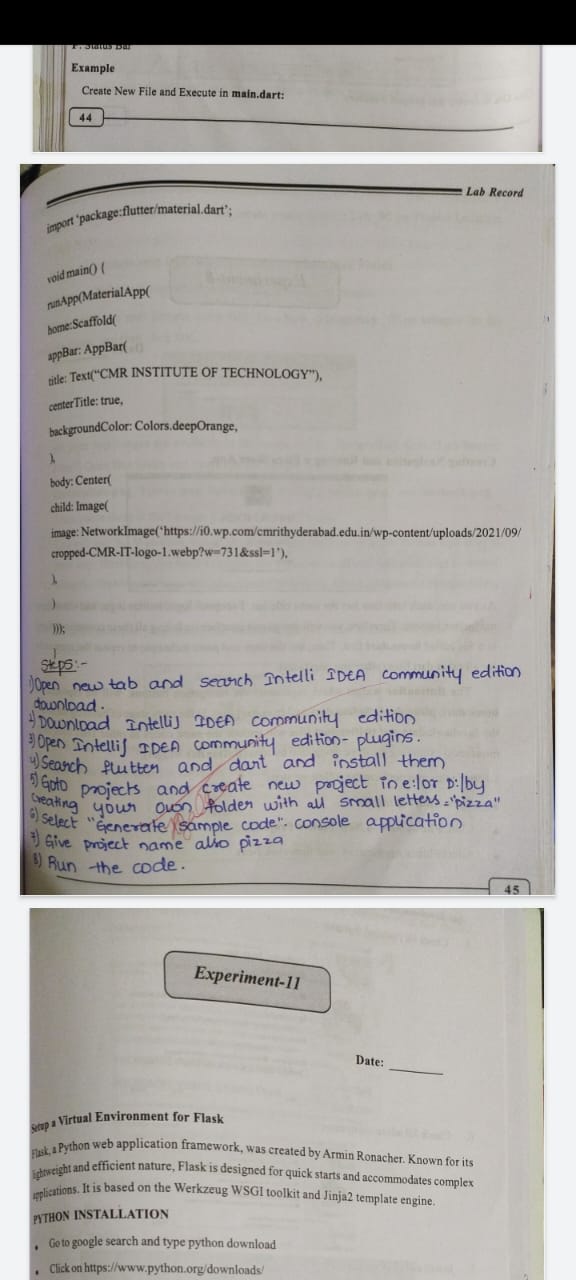 F. Status Bar
Example
Create New File and Execute in main.dart:
44
Lab Record
import 'package:flutter/material.dart';
void main() {
runApp(MaterialApp(
home:Scaffold(
appBar: AppBar(
title: Text("CMR INSTITUTE OF TECHNOLOGY"),
centerTitle: true,
backgroundColor: Colors.deepOrange,
),
body: Center(
child: Image(
image: NetworkImage('https://i0.wp.com/cmrithyderabad.edu.in/wp-content/uploads/2021/09/
cropped-CMR-IT-logo-1.webp?w=731&ssl=1'),
),
)
)));
}
Steps:-
1) Open new tab and search Intelli IDEA community edition
download.
2) Download IntelliJ IDEA community edition
3) Open IntelliJ IDEA community edition- plugins.
4) Search flutter and dart and install them
5) Goto projects and create new project in e:/or D:/by
creating your own folder with all small letters - "pizza"
6) Select "Generate sample code". console application
7) Give project name also pizza
8) Run the code.
45
Experiment-11
Date:
Setup a Virtual Environment for Flask
Flask, a Python web application framework, was created by Armin Ronacher. Known for its
lightweight and efficient nature, Flask is designed for quick starts and accommodates complex
applications. It is based on the Werkzeug WSGI toolkit and Jinja2 template engine.
PYTHON INSTALLATION
• Go to google search and type python download
• Click on https://www.python.org/downloads/